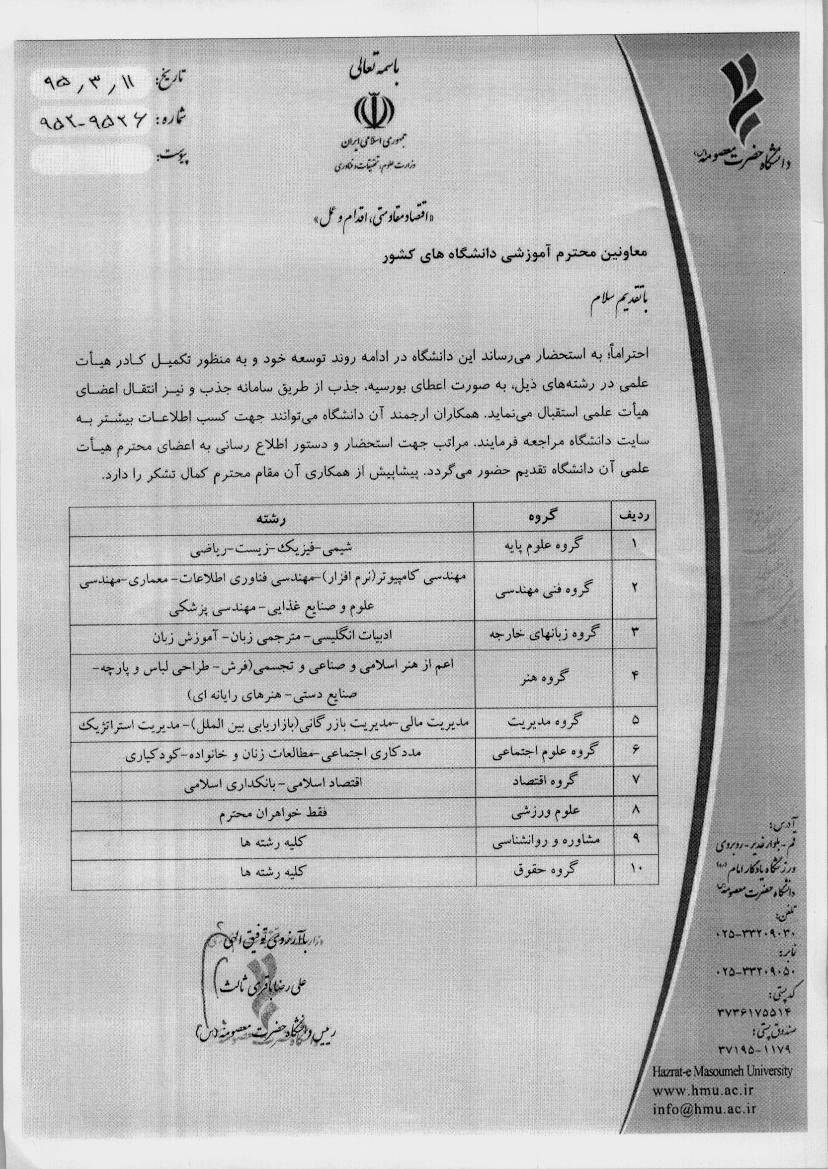 باسمه تعالی
جمهوری اسلامی ایران
وزارت علوم، تحقیقات و فناوری
تاریخ: ۹۵٫۳٫۱۱
شماره: ۹۵۲-۹۵۲۶
پیوست:
دانشگاه حضرت معصومه (س)
«اقتصاد مقاومتی، اقدام و عمل»
معاونین محترم آموزشی دانشگاه های کشور
با تقدیم سلام
احتراماً؛ به استحضار می‌رساند این دانشگاه در ادامه روند توسعه خود و به منظور تکمیل کادر هیأت
علمی در رشته‌های ذیل، به صورت اعطای بورسیه، جذب از طریق سامانه جذب و نیز انتقال اعضای
هیأت علمی استقبال می‌نماید. همکاران ارجمند آن دانشگاه می‌توانند جهت کسب اطلاعات بیشتر به
سایت دانشگاه مراجعه فرمایند. مراتب جهت استحضار و دستور اطلاع رسانی به اعضای محترم هیأت
علمی آن دانشگاه تقدیم حضور می‌گردد. پیشاپیش از همکاری آن مقام محترم کمال تشکر را دارد.
ردیف گروه رشته
۱ گروه علوم پایه شیمی-فیزیک-زیست-ریاضی
۲ گروه فنی مهندسی مهندسی کامپیوتر(نرم افزار)-مهندسی فناوری اطلاعات- معماری-مهندسی
علوم و صنایع غذایی-مهندسی پزشکی
۳ گروه زبانهای خارجه ادبیات انگلیسی- مترجمی زبان- آموزش زبان
۴ گروه هنر اعم از هنر اسلامی و صناعی و تجسمی(فرش- طراحی لباس و پارچه-
صنایع دستی- هنرهای رایانه ای)
۵ گروه مدیریت مدیریت مالی-مدیریت بازرگانی(بازاریابی بین الملل)-مدیریت استراتژیک
۶ گروه علوم اجتماعی مددکاری اجتماعی-مطالعات زنان و خانواده-کودکیاری
۷ گروه اقتصاد اقتصاد اسلامی-بانکداری اسلامی
۸ علوم ورزشی فقط خواهران محترم
۹ مشاوره و روانشناسی کلیه رشته ها
۱۰ گروه حقوق کلیه رشته ها
با آرزوی توفیق الهی
علی رضا باقری ثالث
رییس دانشگاه حضرت معصومه (س)
آدرس:
قم- بلوار غدیر- روبروی
ورزشگاه یادگار امام (ره)
دانشگاه حضرت معصومه (س)
تلفن:
۰۲۵-۳۳۲۰۹۰۳۰
نمابر:
۰۲۵-۳۳۲۰۹۰۵۰
کد پستی:
۳۷۳۶۱۷۵۵۱۴
صندوق پستی:
۳۷۱۹۵-۱۱۷۹
Hazrat-e Masoumeh University
www.hmu.ac.ir
info@hmu.ac.ir